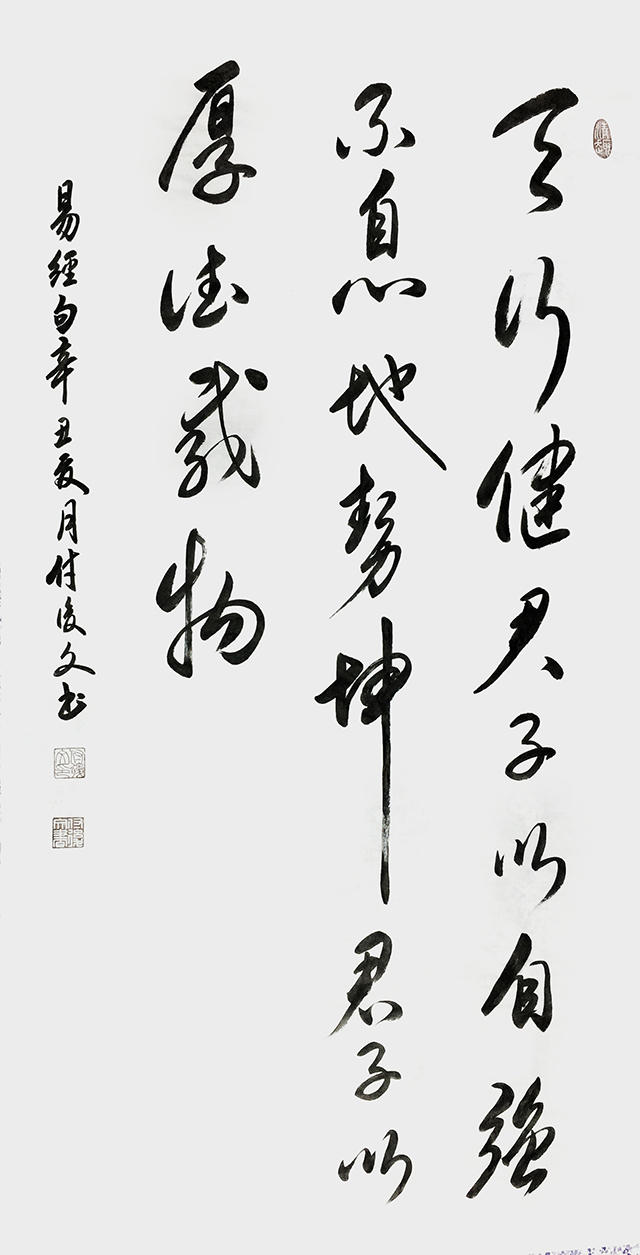 天行健君子以自強
不息地勢坤君子以
厚德載物
易經句辛丑夏月付後文書